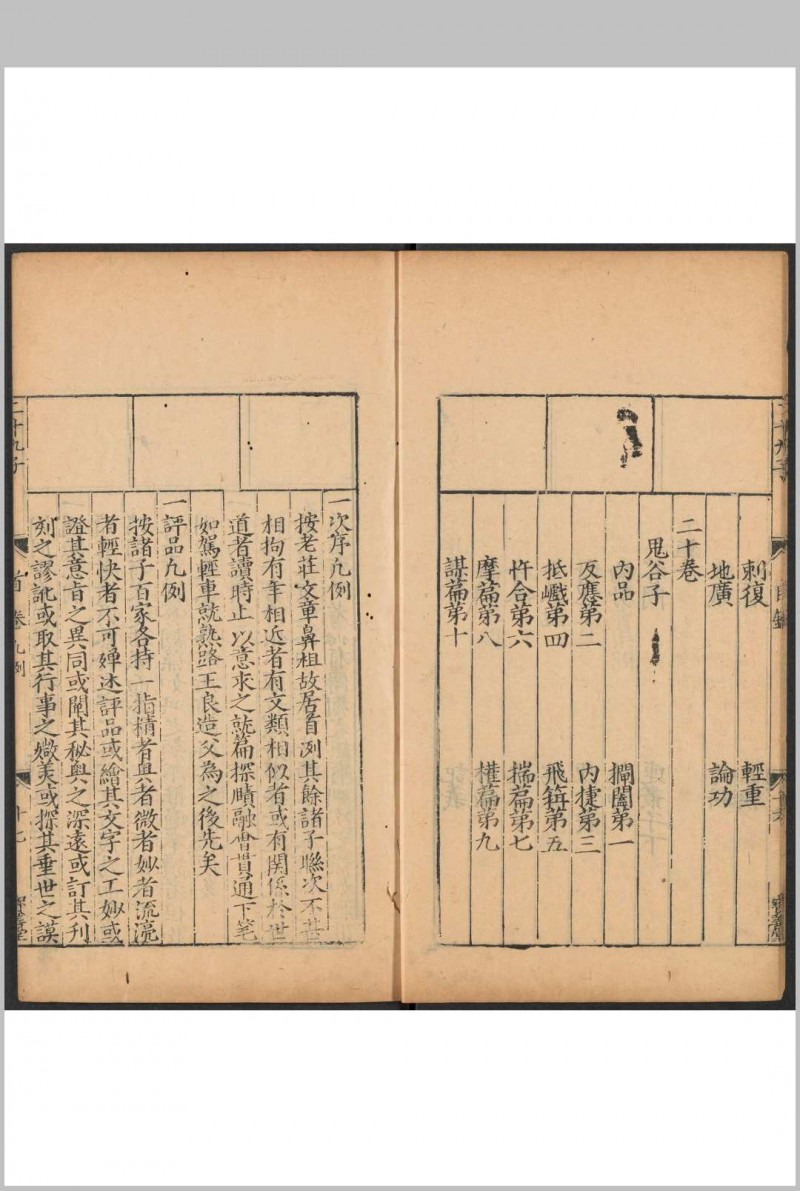 刺復　輕重
地廣　論功
二十卷
鬼谷子
內品　捭闔第一
反應第二　內揵第三
抵巇第四　飛箝第五
忤合第六　揣篇第七
摩篇第八　權篇第九
謀篇第十
一次序凡例
按老莊文章鼻祖故居首列其餘諸子聯次不甚
相拘有年相近者有文類相似者或有関係於世
道者讀時止以意求之就篇探賾融會貫通下筆
如駕輕車就熟路王良造父為之後先矣
一評品凡例
按諸子百家各持一指精者與者微者妙者流瀉
者輕快者不可殫述評品或繪其文字之工妙或
證其意㫖之異同或闡其秘與之深遠或訂其刋
刻之謬訛或取其行事之媺美或探其垂世之謨
二十九子
首卷凡例
十七